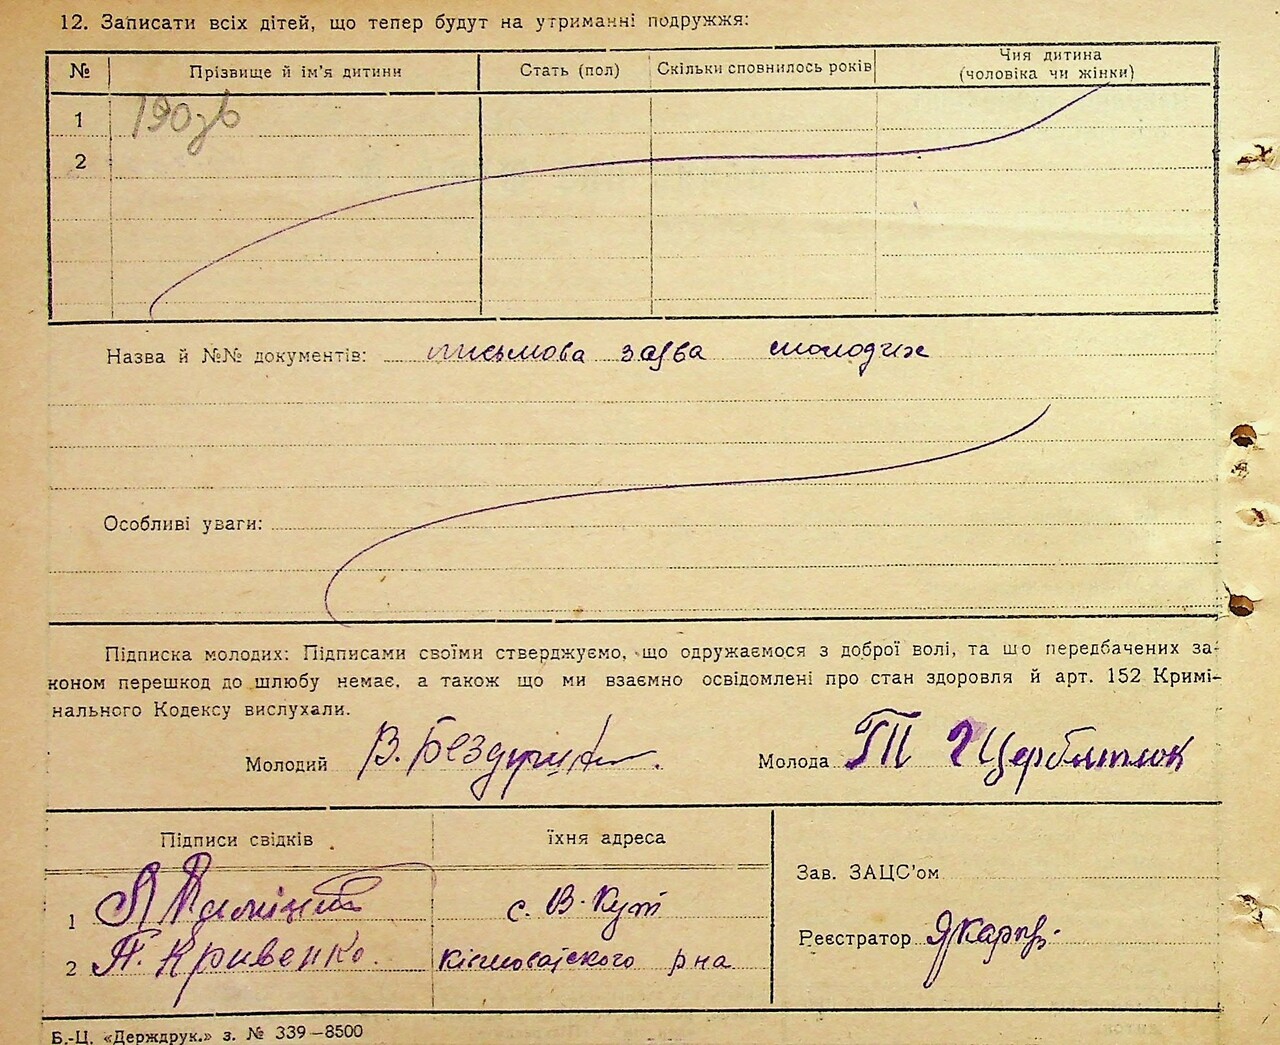 12. Записати всіх дітей, що тепер будут на утриманні подружжя:
№ Прізвище й ім'я дитини Стать (пол) Скільки сповнилось років Чия дитина (чоловіка чи жінки)
1
2
Назва й №№ документів: письмова заява молодих
Особливі уваги:
Підписка молодих: Підписами своїми стверджуємо, що одружаємося з доброї волі, та шо передбачених за-
коном перешкод до шлюбу немає, а також що ми взаємно освідомлені про стан здоровля й арт. 152 Кримі-
нального Кодексу вислухали.
Молодий В. Молода
Підписи свідків їхня адреса
Зав. ЗАЦС'ом
1 с. В-Кут
Реєстратор
2 П. Кривенко. р на
Б.-Ц. «Держдрук.» з. № 339–8500